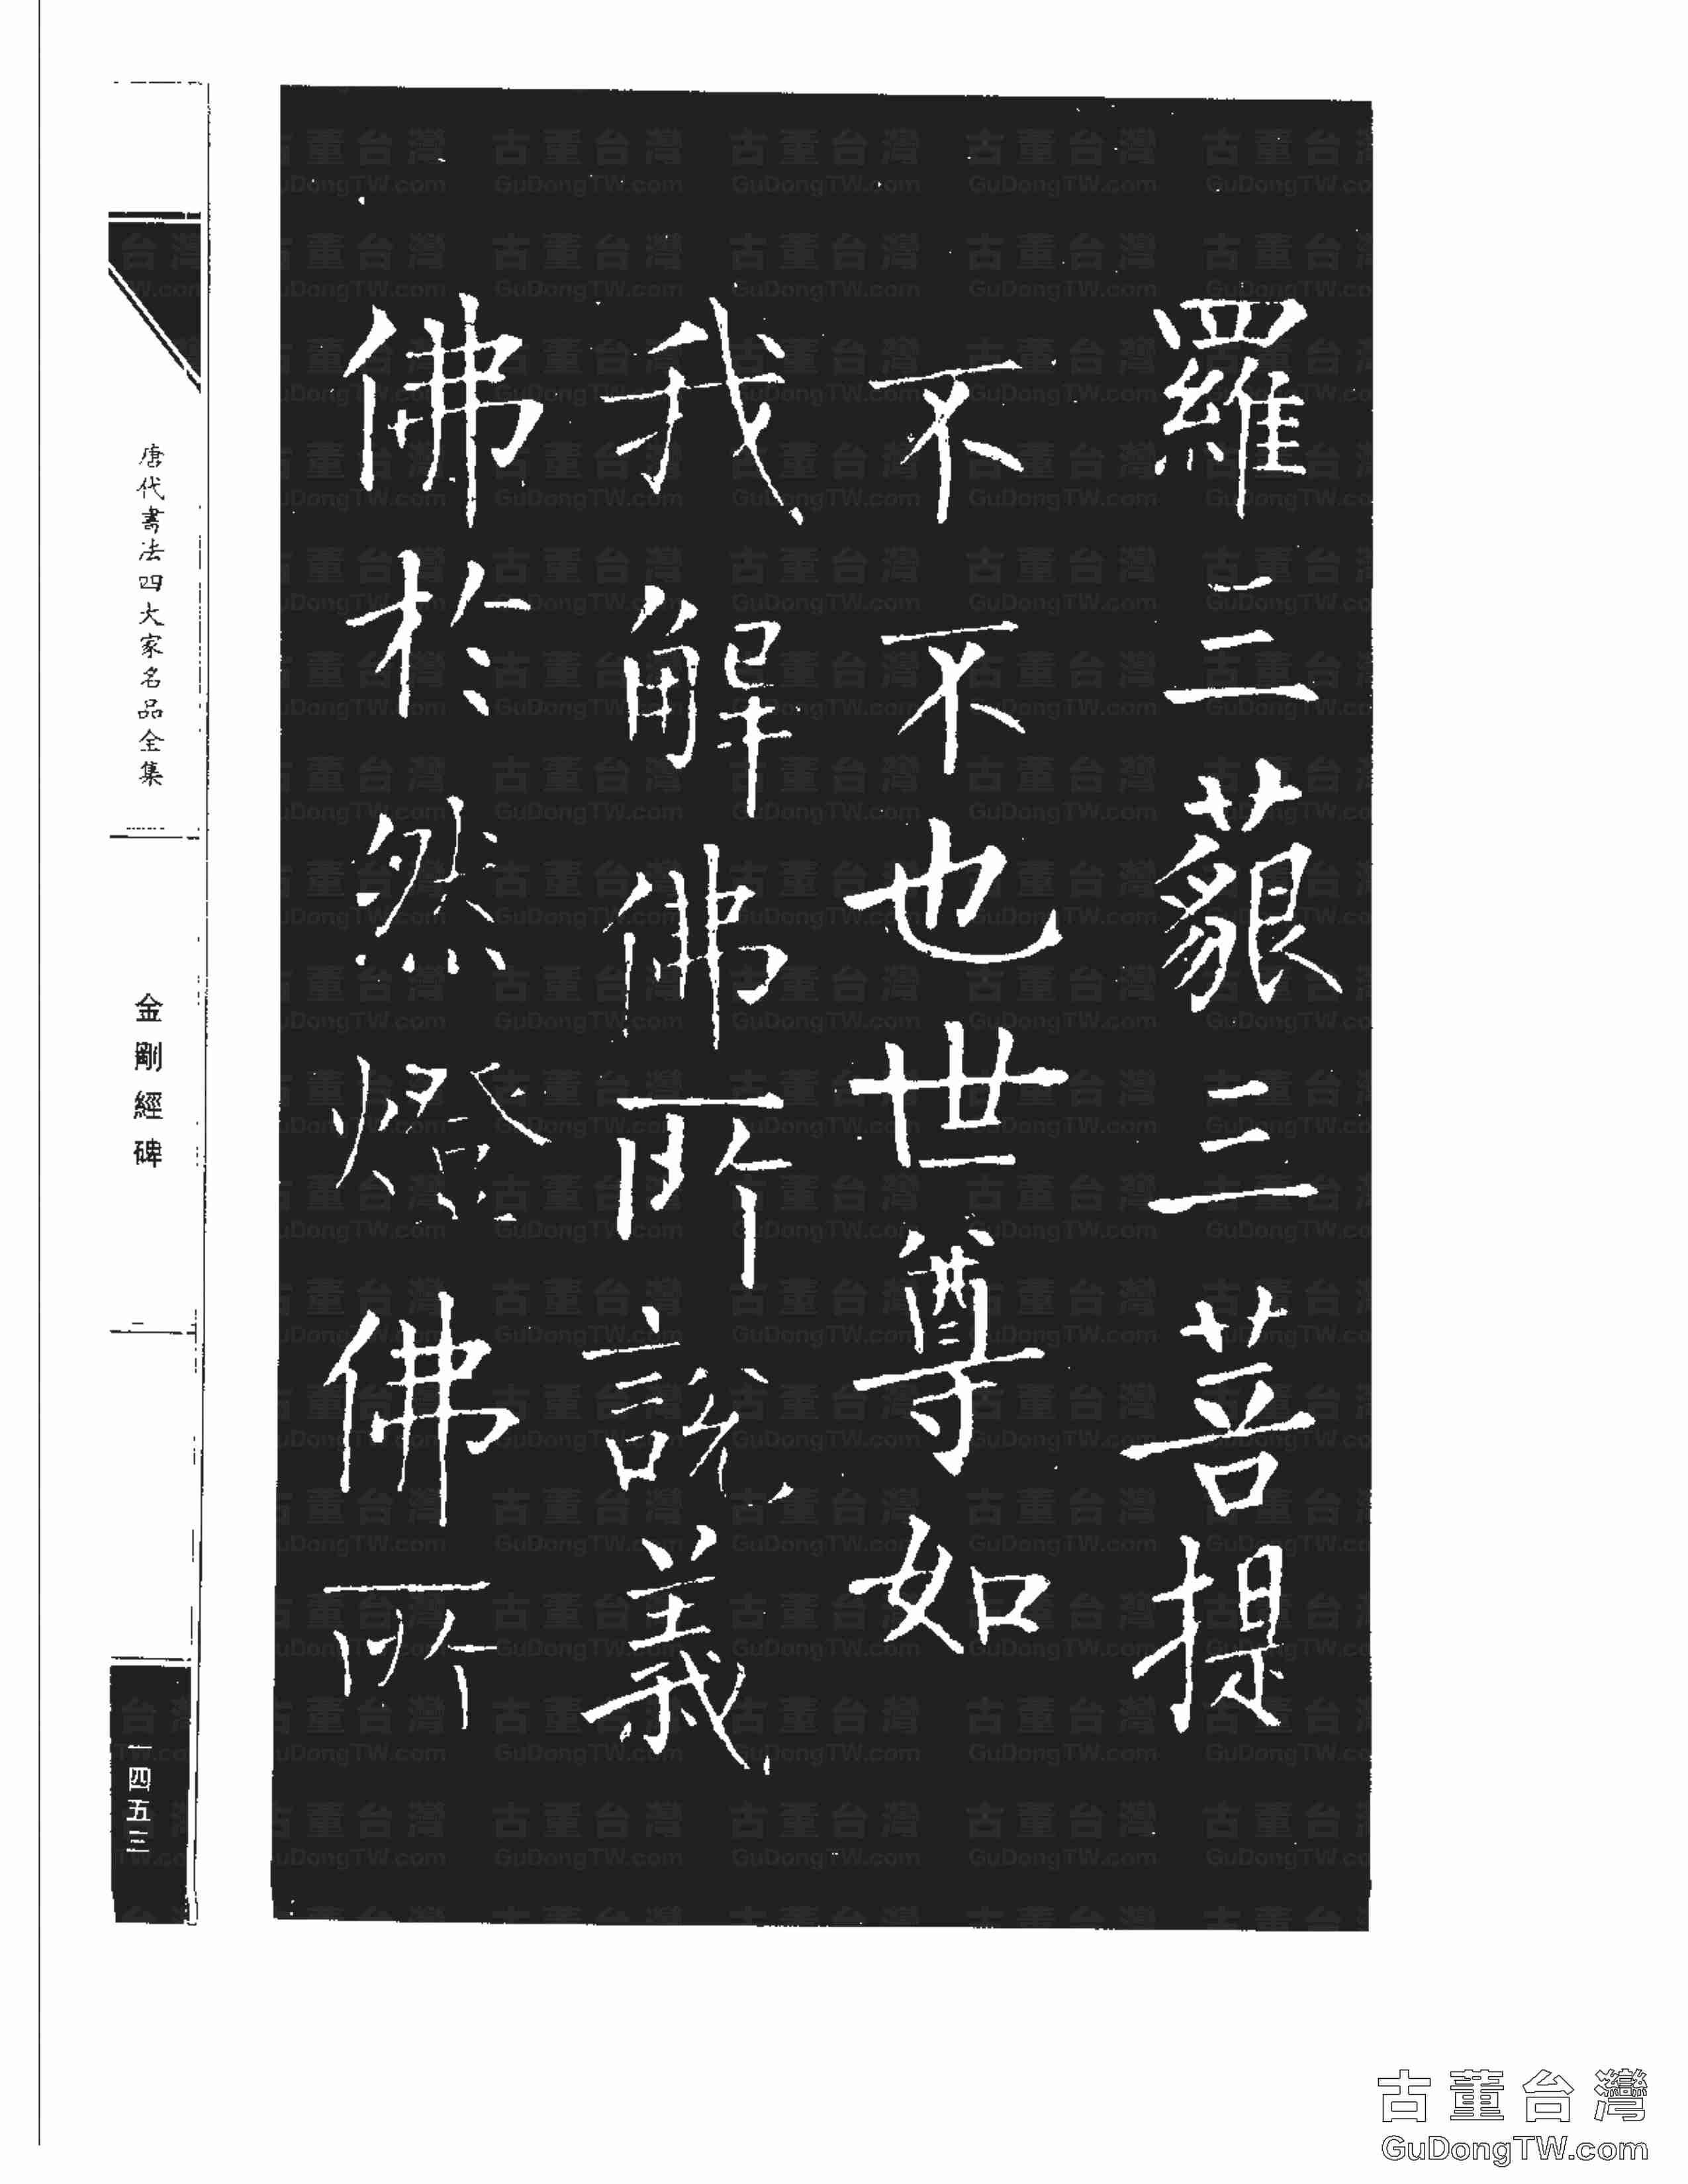 羅三藐三菩提
不不也世尊如
我解佛所說義
佛於然燈佛所
唐代書法四大家名品全集
金剛經碑
一四五三
古董台灣
GuDongTW.com